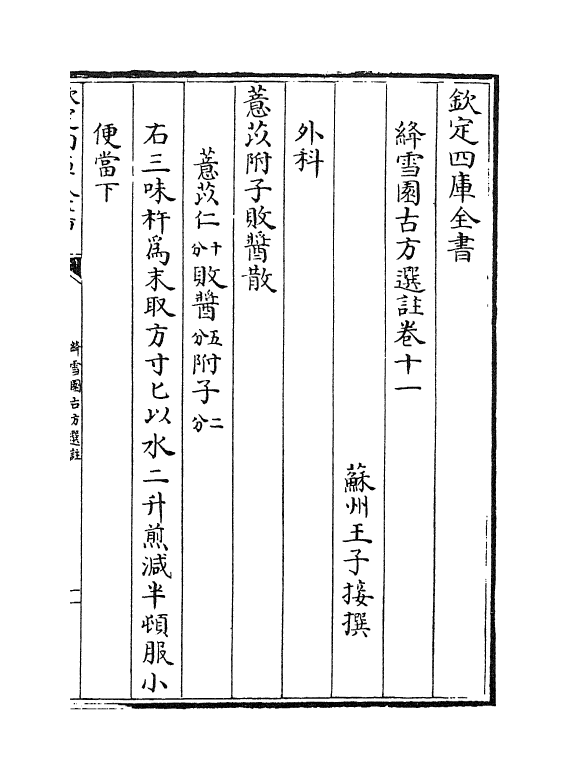 欽定四庫全書
絳雪園古方選註卷十一
蘇州王子接撰
外科
薏苡附子敗醬散
薏苡仁十分敗醬五分附子二分
右三味杵爲末取方寸匕以水二升煎減半頓服小
便當下
絳雪園古方選註